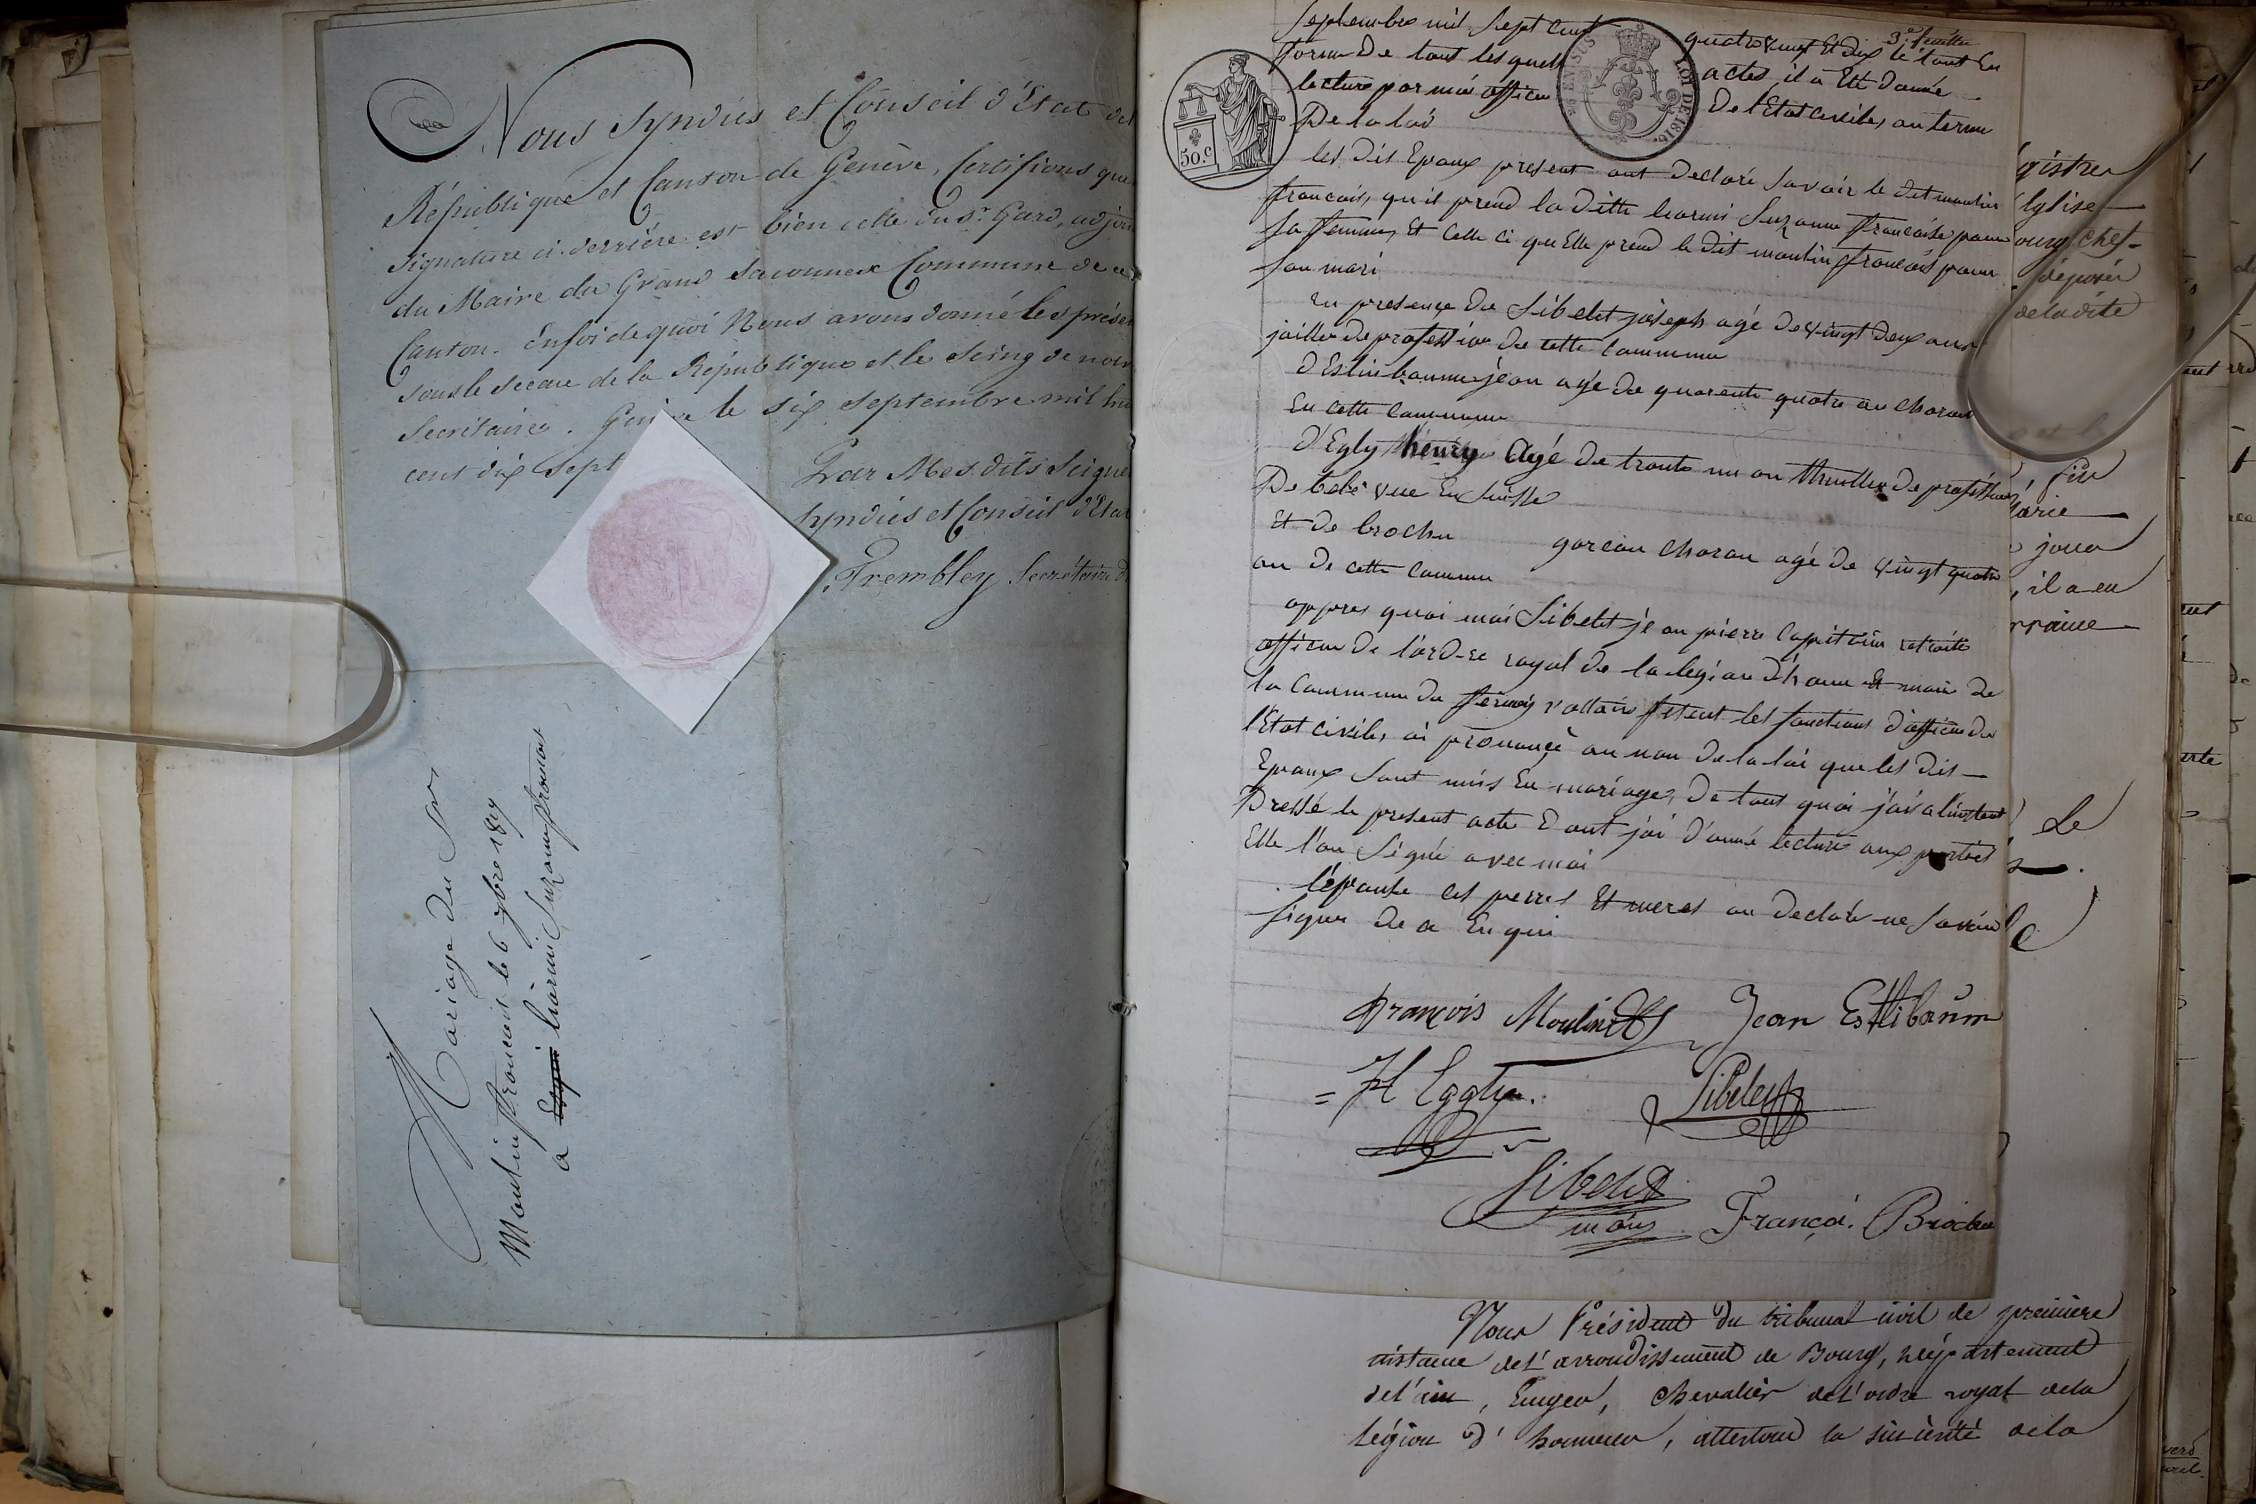 Nous Syndics et Conseil d'Etat de
République et Canton de Genève, Certifions que
signature ci-derrière est bien celle du Sr. Gard, adjoi
du Maire du Grand Saconnex Commune de ce
Canton. En foi de quoi Nous avons donné les présen
sous le sceau de la République et le seing de notre
Secrétaire. Genève le six septembre mil hu
cent dix sept
Par Mes dits Seigne
Syndics et Conseil d'Etat
Trembley Secrétaire d
Mariage du Sr
Moulin francois le 6 7bre 1817
a liarmi Suzanne francoise
3.e feuillet
Septembre mil Sept Cent quatre vingt et dix le tout En
forme De tout les quels actes il a Eté donné
lecture par moi officier De l'Etat civile, au terme
De la loi
50.c
EN SUS
LOI DE 1816.
les dits Epoux présent ont Déclaré Savoir le dit moulin
francois, qu'il prend la ditte liarmi Suzanne francoise pour
Sa femme, Et Celle ci qu'Elle prend le dit moulin francois pour
Son mari
En presence de Sibelet joseph agé de vingt deux ans
joaillier de profession de cette Commune
d'Estlinbaume jéan agé de quarente quatre an charon
En cette Commune
d'Egly henry Agé de trante un an de profession
De En Suisse
Et de brochu garcon charon agé de vingt quatre
an de cette Commun
appres quoi moi Sibelet jéan pierre Capitaine retraité
officier De l'ordre royal de la légion d'honn Et maire de
la Commune du fernéy voltaire fesent les fonctions d'officier de
l'Etat civile, ai prononcé au nom De la loi que les dis
Epoux Sont unis En mariage, De tout quoi j'ais a l'instent
Dressé le present acte Dont j'ai d'onné lecture aux parties
Elle l'on Signé avec moi
l'épouse les perres Et meres on declaré ne Savoir
Signer de ce Enquri
François Moulin
Jean Estlibaum
H Eggly
Sibelet
Sibelet
maire
Françoi. Brochu
Nous Président du tribunal civil de première
instance de l'arrondissement de Bourg, département
de l'ain, Chevalier de l'ordre royal de la
légion d'honneur, attestons la sincérité de la
gistre
l'glise
ourg chef-
déposée
de la dite
fin
arie
joua
il a eu
rraine
Le